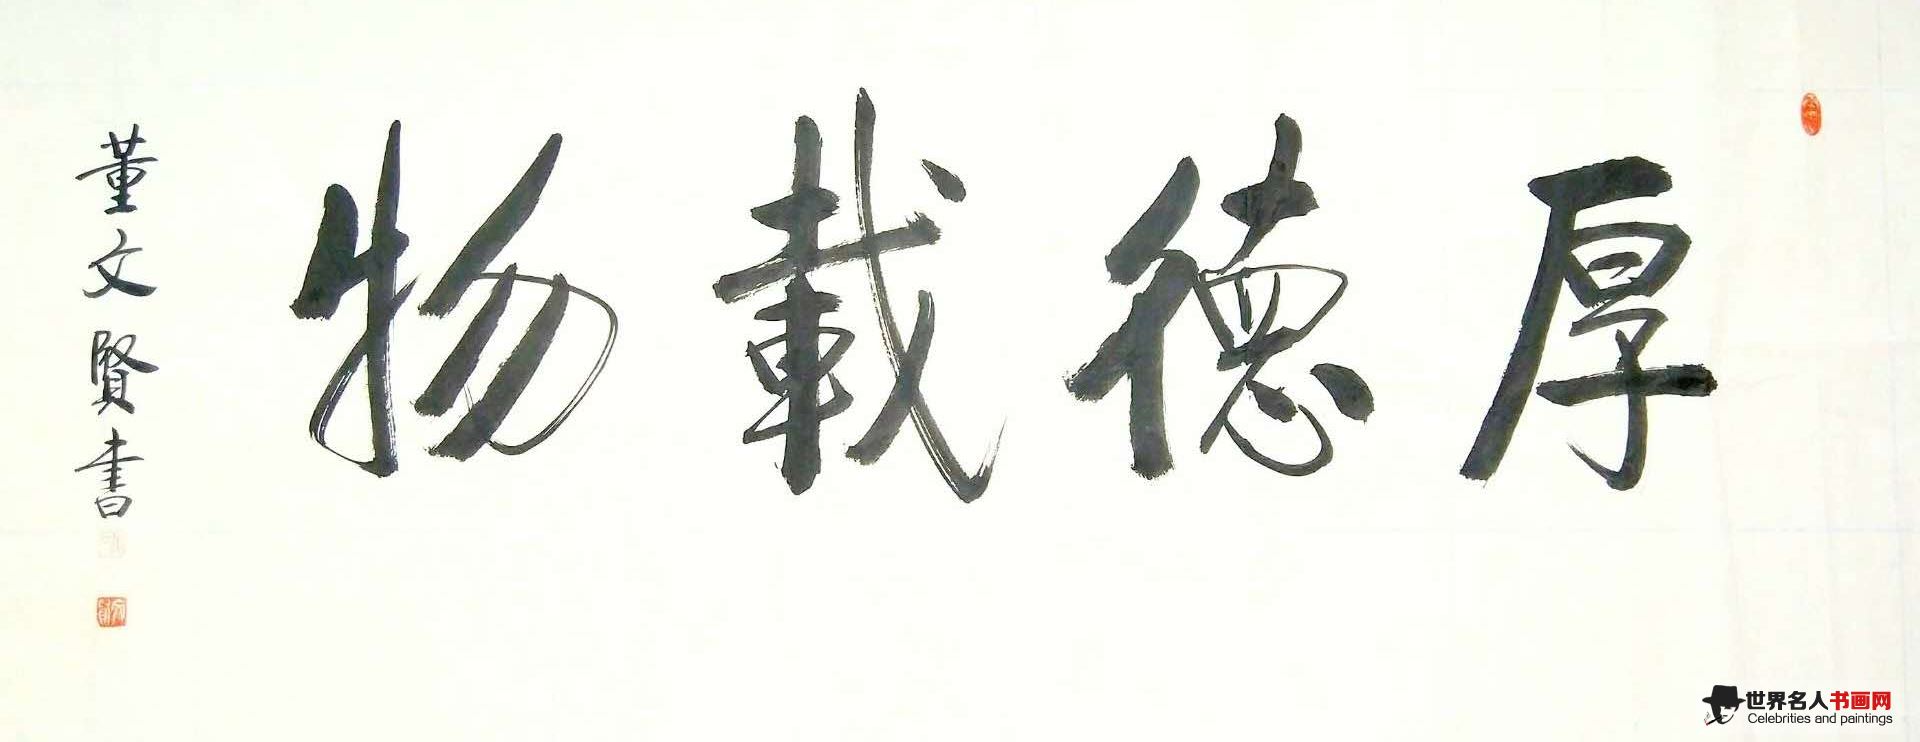 厚德載物
董文賢書
世界名人书画网
Celebrities and paintings